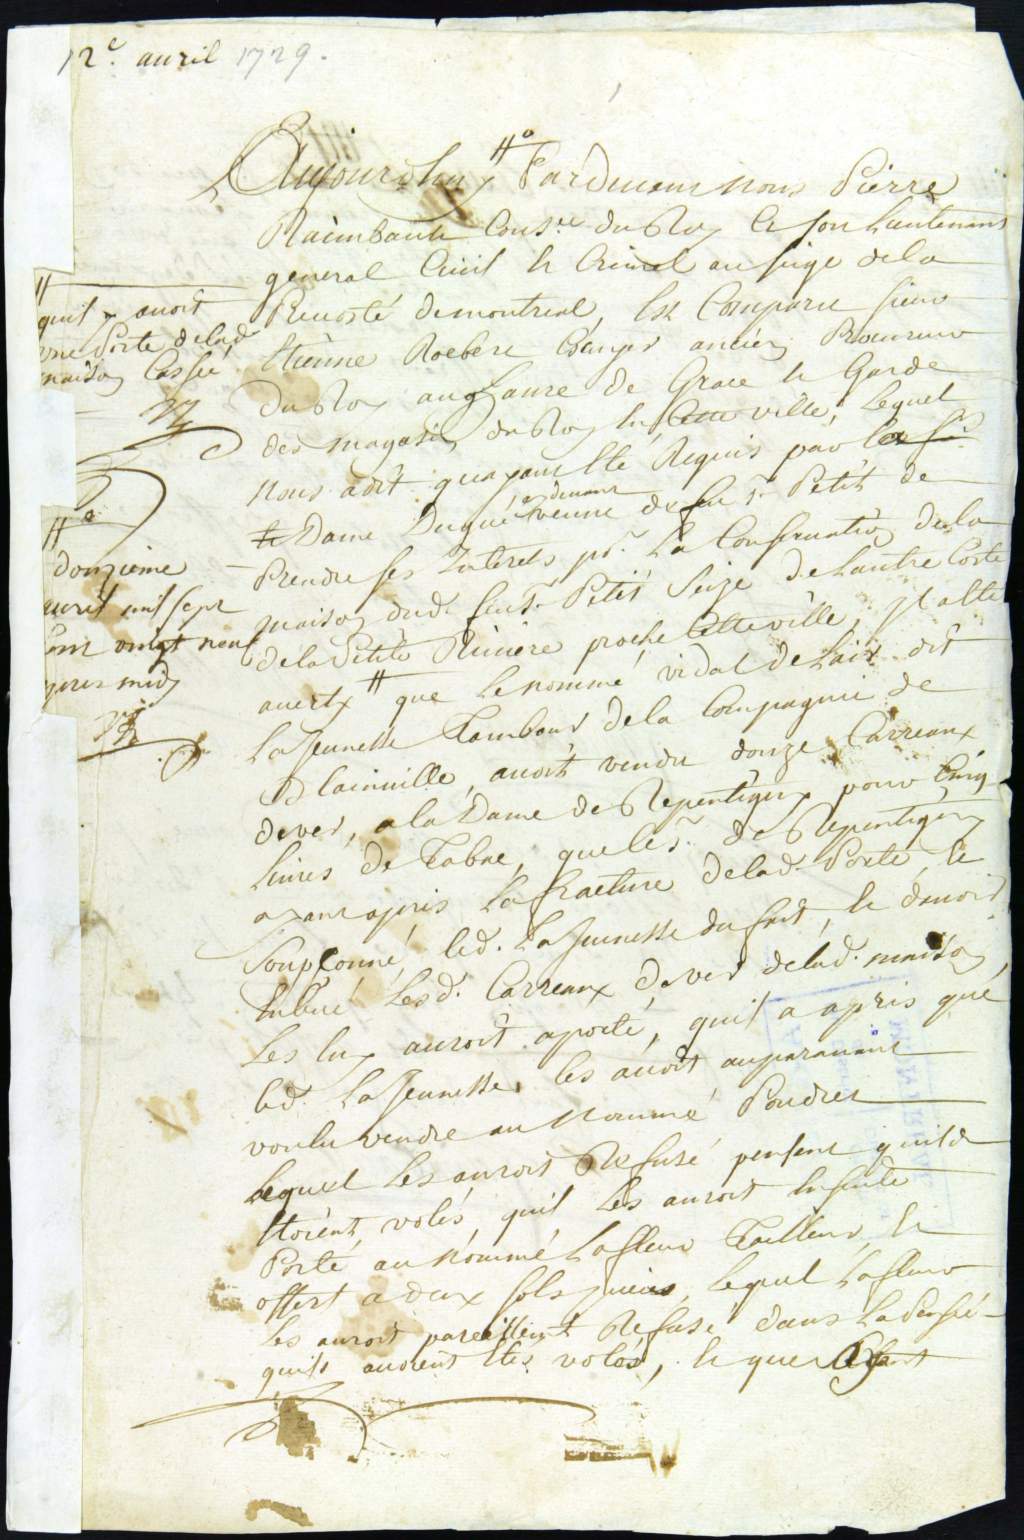 12e. auril 1729.
Aujourdhuy #o Pardeuant nous Pierre
Raimbault Conser. du Roy Et son Lieutenant
general Ciuil Et Criminel au siege dela
Preuosté demontreal, Est Comparu sieur
Etienne Rocbert ancien Procureur
du Roy au haure de Grace Et Garde
des magasins du Roy En Cette ville, Lequel
nous adit quayant Eté Requis par La Se
Dame Dugué cy deuant veuue de feu sr. Petit de
Prendre ses Interets pr. La Conseruation dela
maison dud. feu sr. Petit Seize de Lautre Costé
dela Petite Riuiere proche Cette ville, Il a Eté
auerty # que Le nommé vidal De Laix dit
La Jeunesse Tambour dela Compagnie de
Blainuille, auoit vendu douze Carreaux
de ver, a la Dame de Repentigny pour Cinq
Liures De Tabac, que le sr. De Repentigny
ayant apris La fracture delad. Porte, Et
Soupçonné led. La Jeunesse du fait, Et dauoir
Enleué Lesd. Carreaux de ver delad. maison,
Les luy auroit aporté, quil a apris que
led. La Jeunesse, les auoit auparauant
voulu vendre au Nommé Poudret
Lequel Les auroit Refusé pensant quils
Etoient volés, quil Les auroit Ensuite
Porté au Nommé Lafleur Tailleur, Et
offert a deux sols piece, Lequel Lafleur
Les auroit pareillement Refusé dans La Pensée
quils auoient Etés volés, Et que
#
quil y auoit
une Porte delad.
maison Cassée
#o
douzieme
auril mil sept
Cent vingt neuf
apres midy